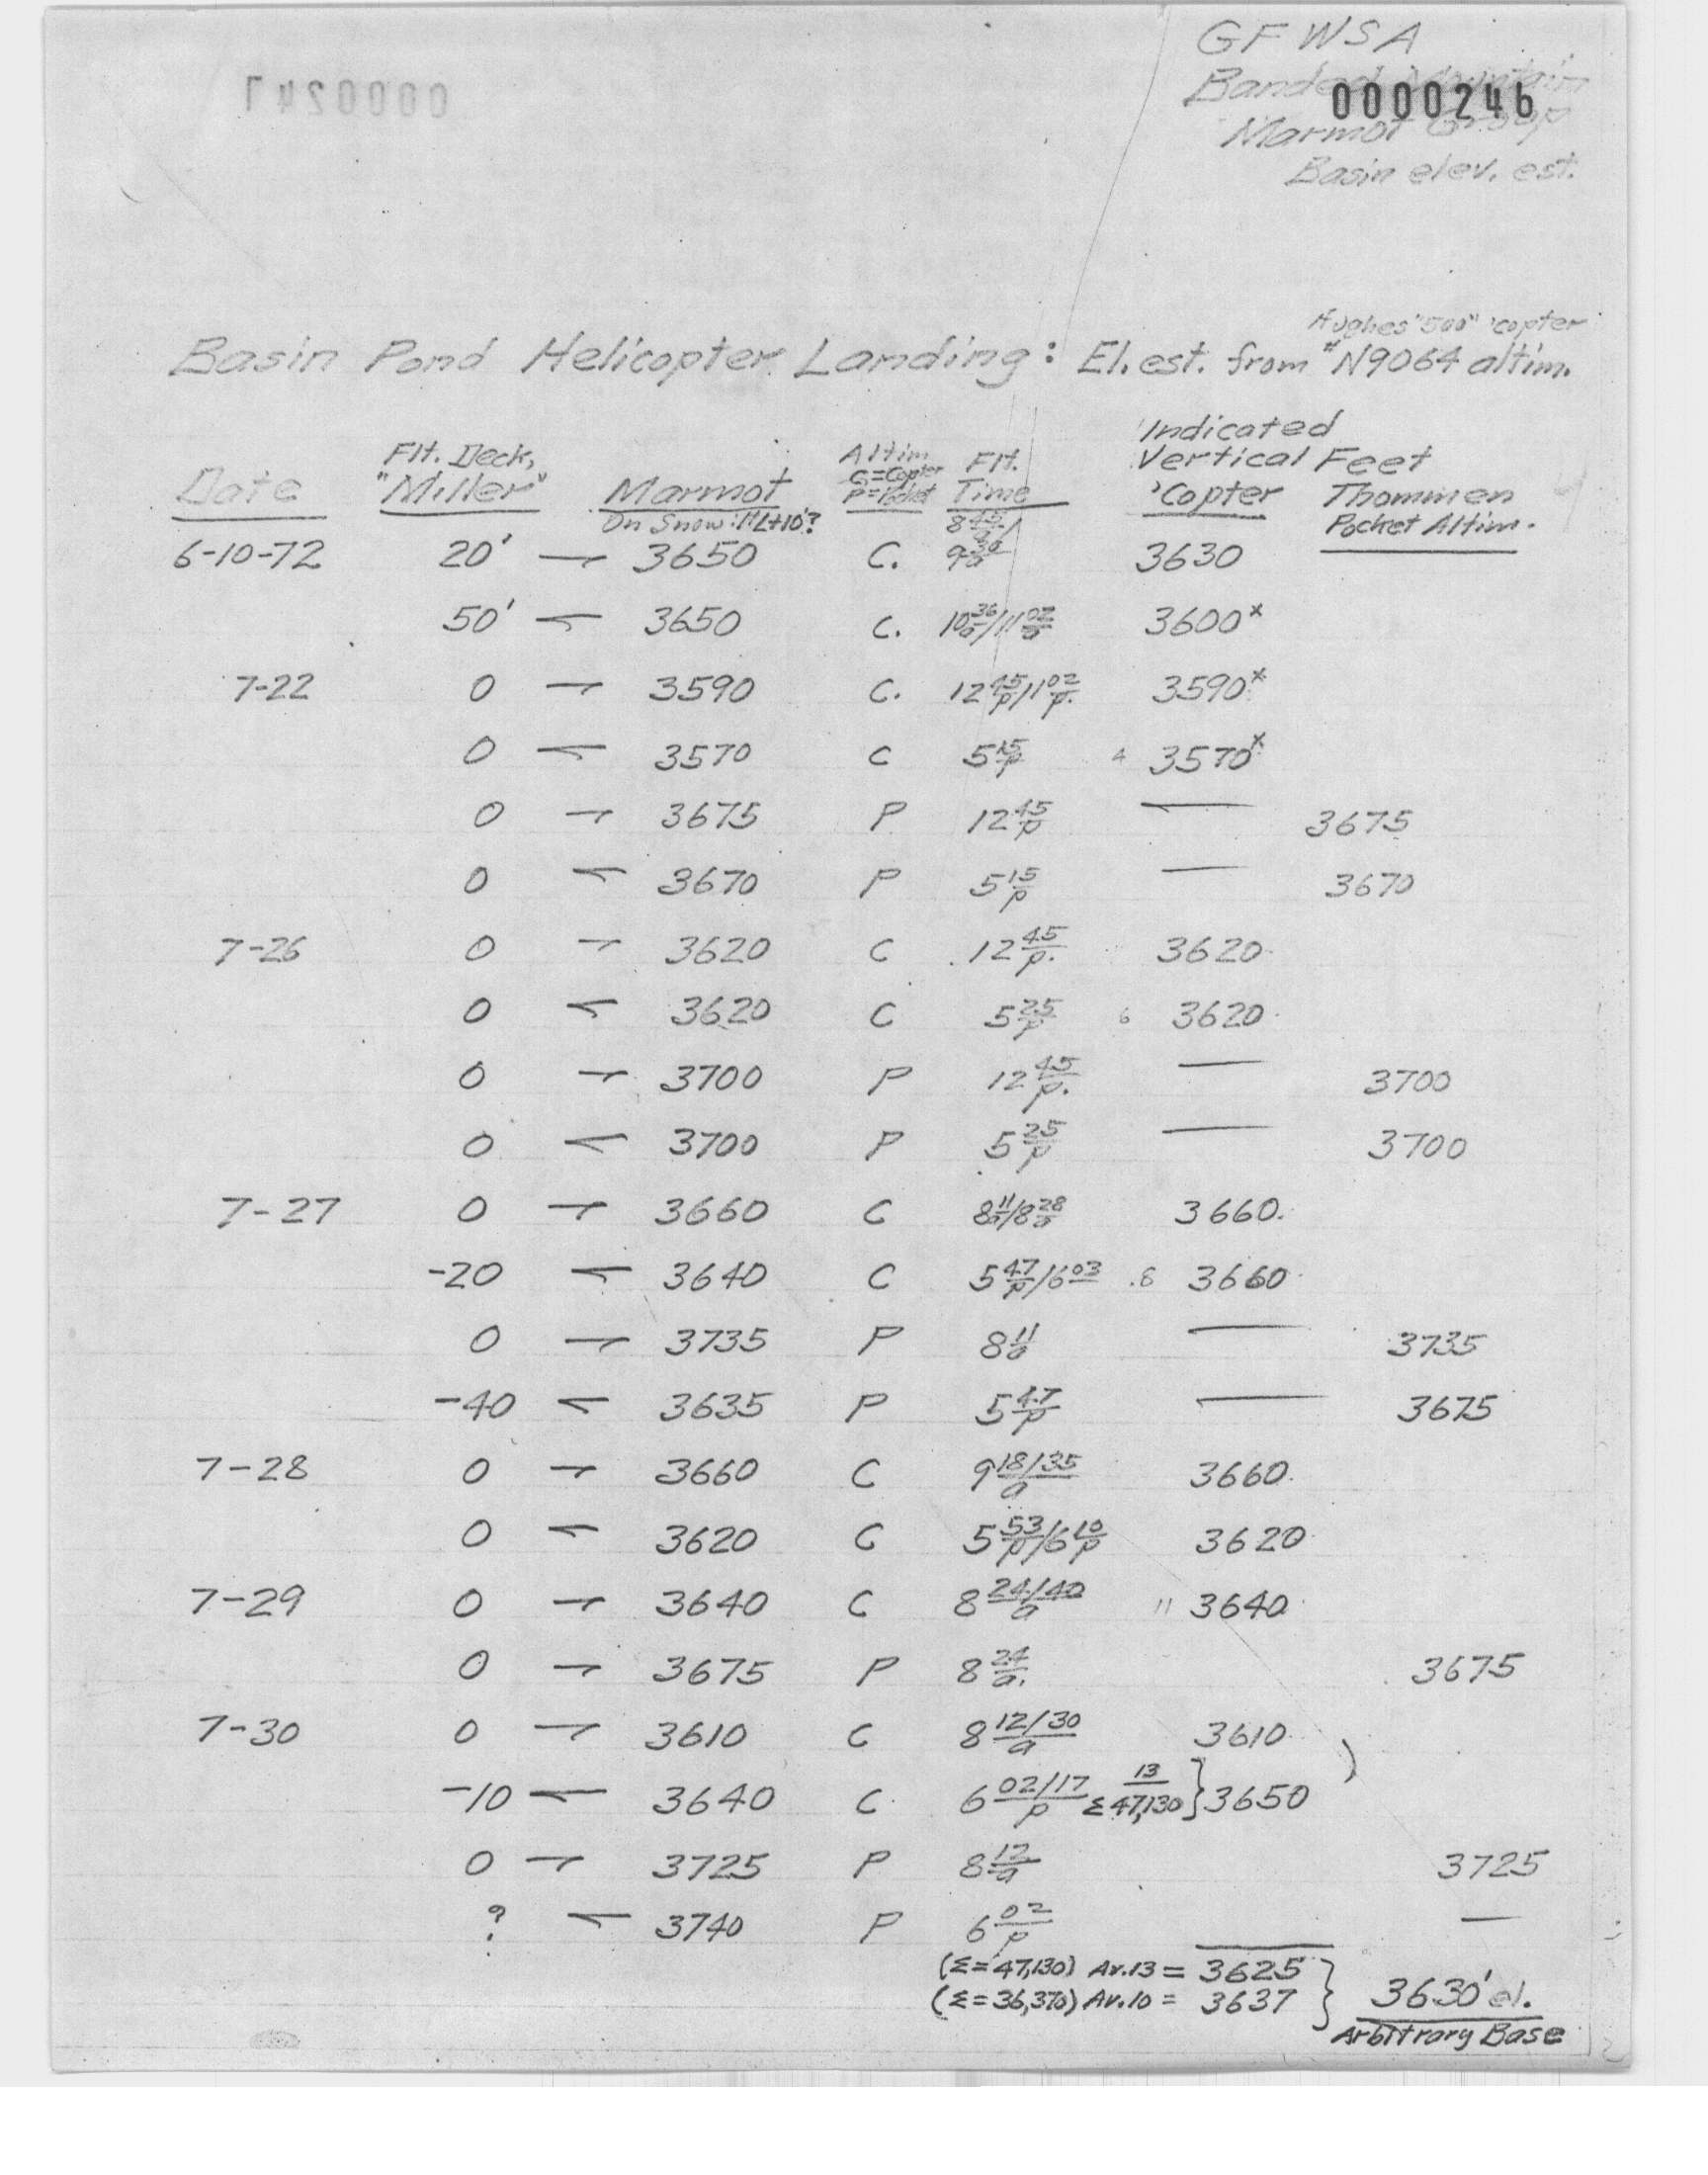 GFWSA
0000247
Banded Mountain
0000246
Marmot Group
Basin elev. est.
Hughes "500" 'copter
Basin Pond Helicopter Landing: El. est. from #N9064 altim.
Date Flt. Deck, "Miller" Marmot Altim C=Copter P=Pocket Flt. Time Indicated Vertical Feet 'Copter Thommen Pocket Altim.
On Snow: HL+10'?
6-10-72 20' → 3650 C. 8 45/a / 9 30/a 3630
50' ← 3650 C. 10 36/a / 11 02/a 3600x
7-22 0 → 3590 C. 12 45/p / 1 02/p. 3590x
0 ← 3570 C 5 15/p 4 3570x
0 → 3675 P 12 45/p — 3675
0 ← 3670 P 5 15/p — 3670
7-26 0 → 3620 C 12 45/p. 3620
0 ← 3620 C 5 25/p 6 3620
0 → 3700 P 12 45/p. — 3700
0 ← 3700 P 5 25/p — 3700
7-27 0 → 3660 C 8 11/a / 8 28/a 3660.
-20 ← 3640 C 5 47/p / 6 03 .8 3660
0 → 3735 P 8 11/a — 3735
-40 ← 3635 P 5 47/p — 3675
7-28 0 → 3660 C 9 18/35/a 3660.
0 ← 3620 C 5 53/p / 6 10/p 3620
7-29 0 → 3640 C 8 24/40/a 11 3640
0 → 3675 P 8 24/a. 3675
7-30 0 → 3610 C 8 12/30/a 3610
-10 ← 3640 C. 6 02/17/p 13/Σ47,130 } 3650
0 → 3725 P 8 12/a 3725
? ← 3740 P 6 02/p —
(Σ=47,130) Av.13 = 3625
(Σ=36,370) Av.10 = 3637 } 3630' el.
Arbitrary Base